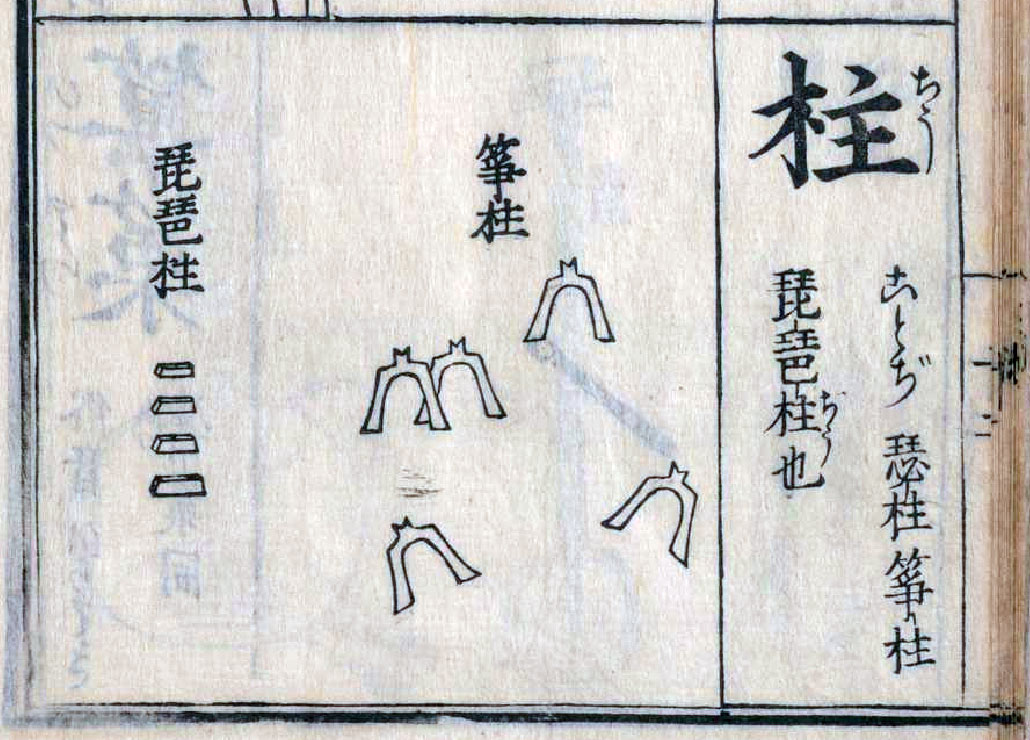 柱
ちう
ことぢ 瑟柱 箏柱
琵琶柱也
ぢう
箏柱
琵琶柱